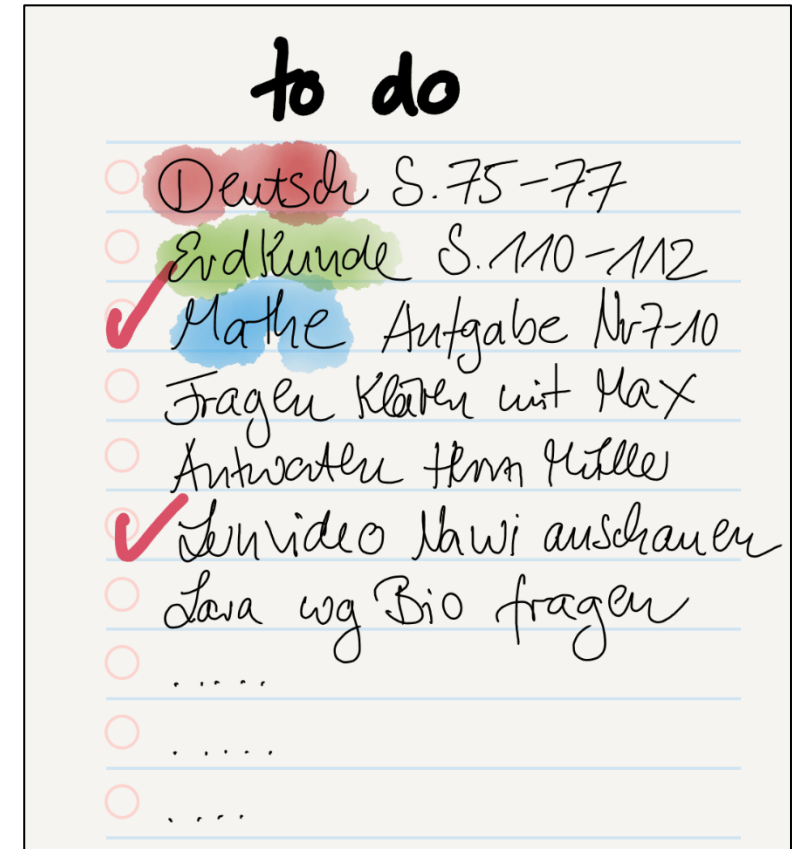 to do
Deutsch S.75-77
Erdkunde S.110-112
Mathe Aufgabe Nr7-10
Fragen klären mit Max
Antworten Herrn Müller
Lernvideo Nawi anschauen
Lara wg Bio fragen
.....
.....
....